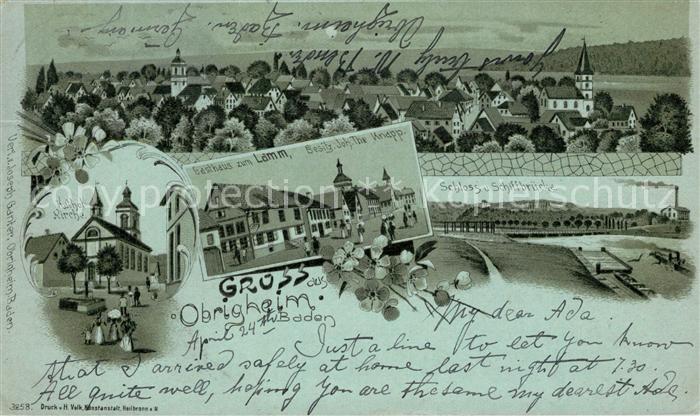 Yours truly W. Bender.
Obrigheim. Baden.
Germany.
Gasthaus zum Lamm, Besitz. Joh. Ph. Knapp.
Kathol.
Kirche
Schloss u. Schiffbrücke
copyright protected
GRUSS aus
Obrigheim.
i/Baden
April 24th
My dear Ada.
Just a line to let you know
that I arrived safely at home last night at 7.30.
All quite well, hoping you are the same my dearest Ada.
Verl. v. Joseph Banken, Obrigheim, Baden.
3258. Druck v. H. Volk, Kunstanstalt, Heilbronn a. N